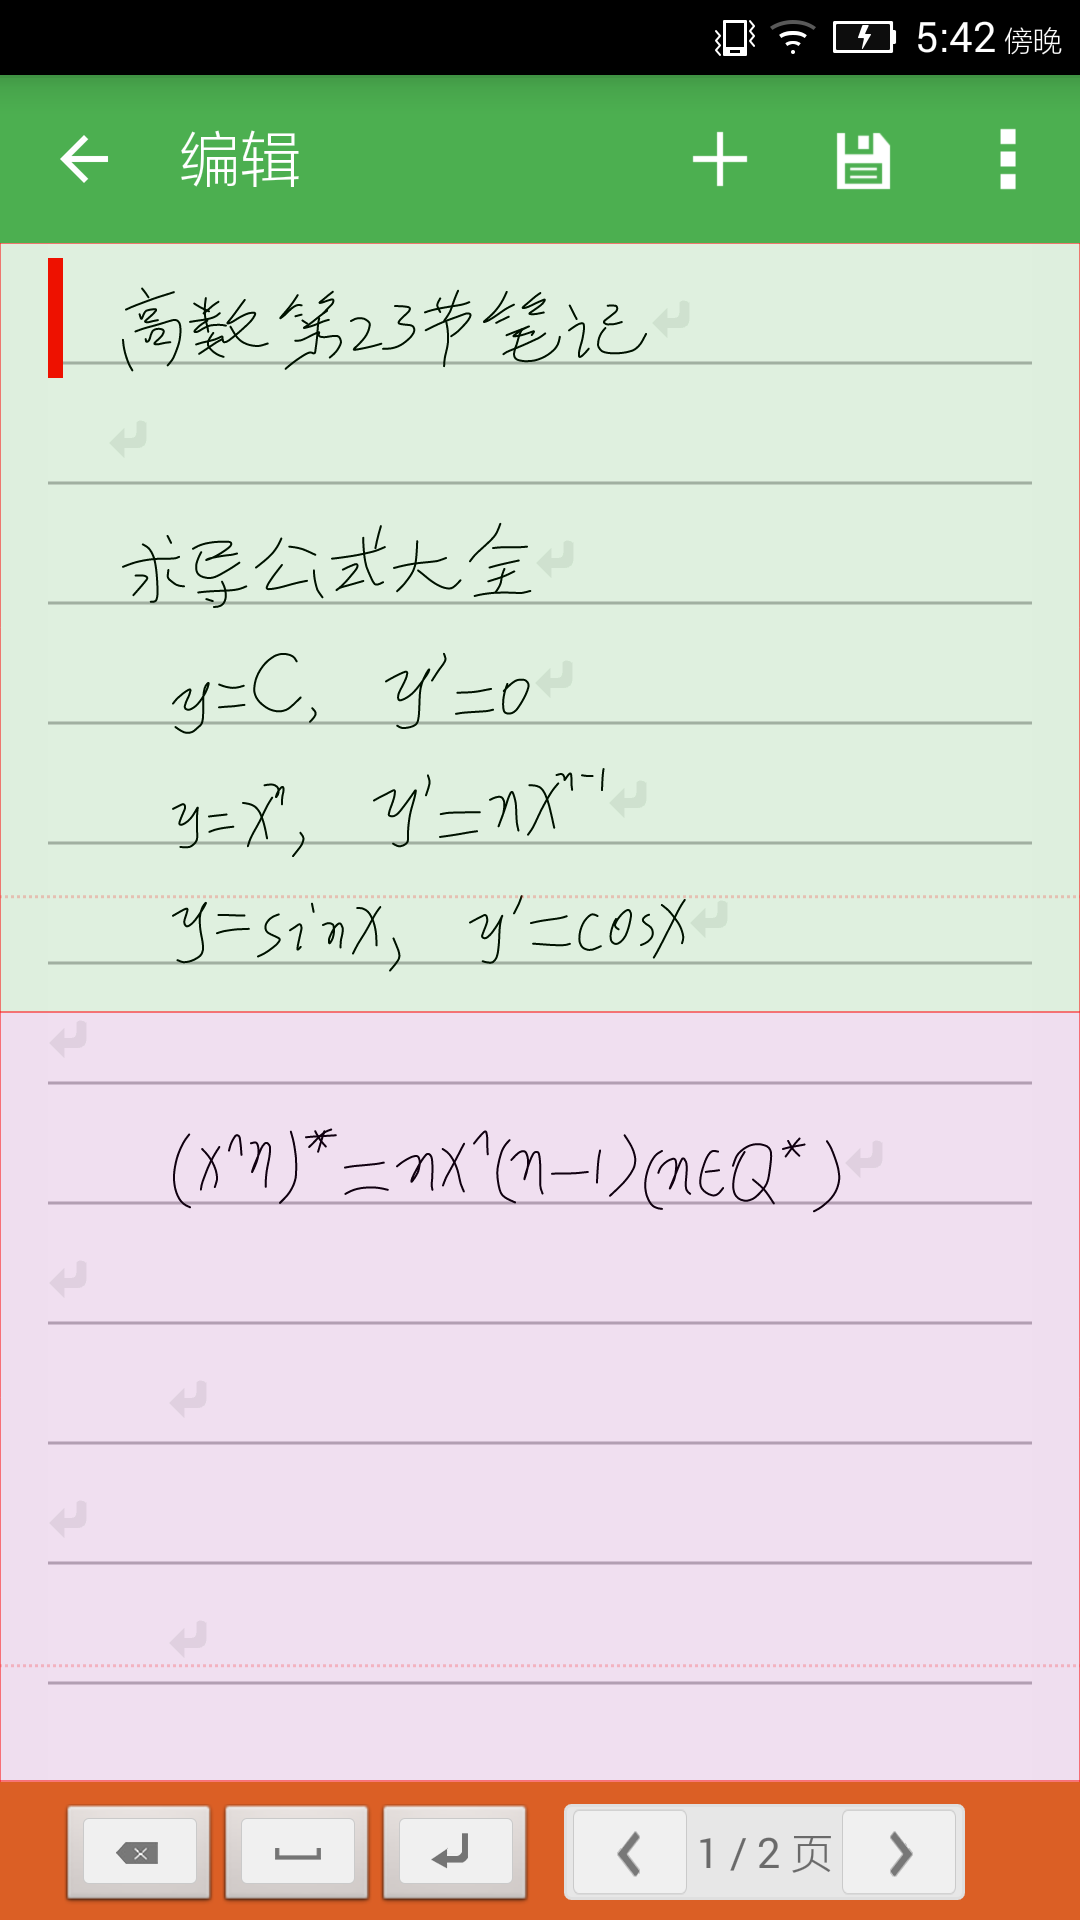 5:42 傍晚
编辑
高数第23节笔记
求导公式大全
y=C, y'=0
y=xⁿ, y'=nxⁿ⁻¹
y=sinx, y'=cosx
(x^n)*=nx^(n-1)(n∈Q*)
1 / 2 页